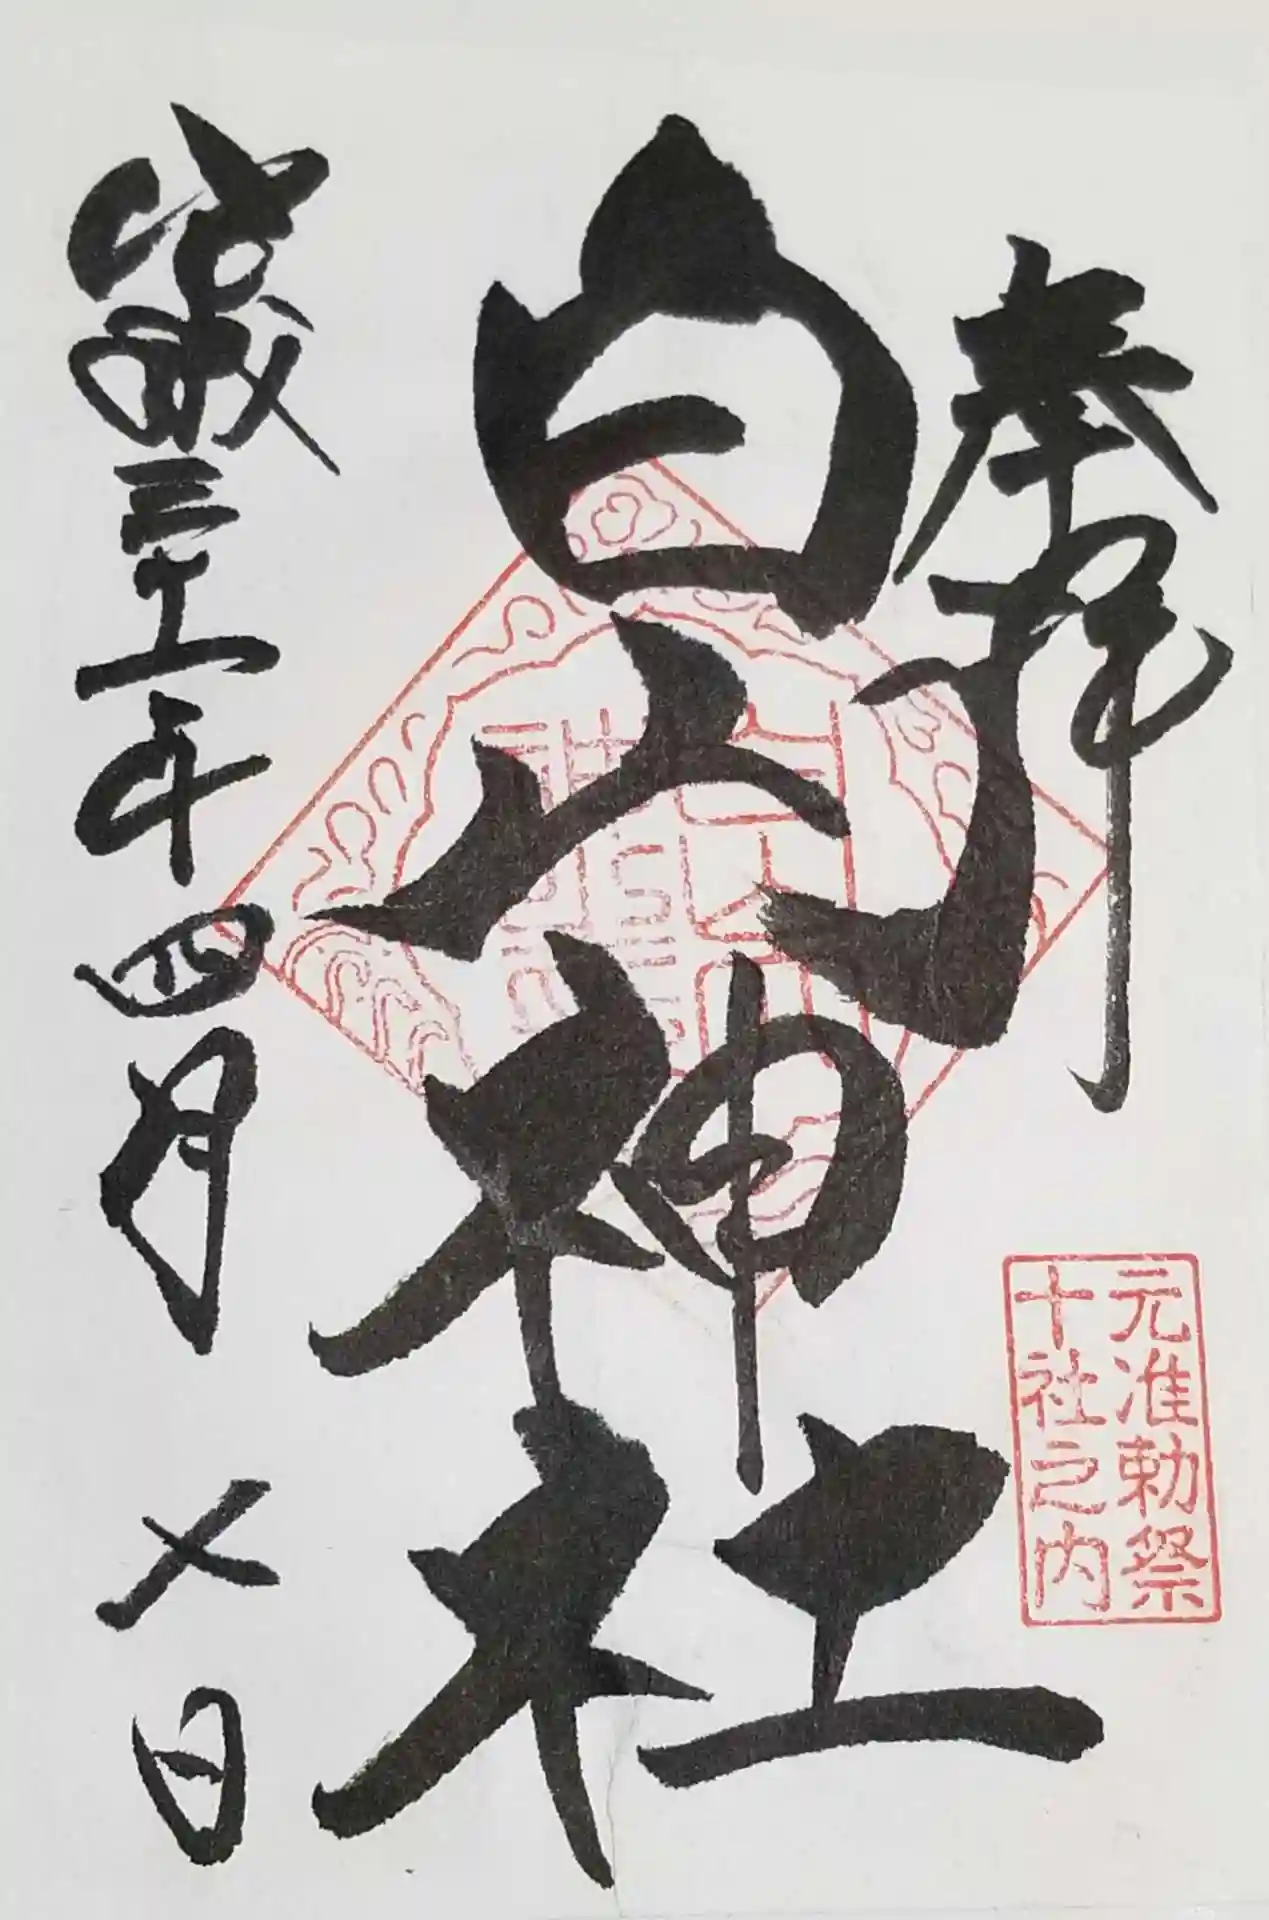 奉拝
元准勅祭
十社之内
白山神社
平成三十一年四月七日